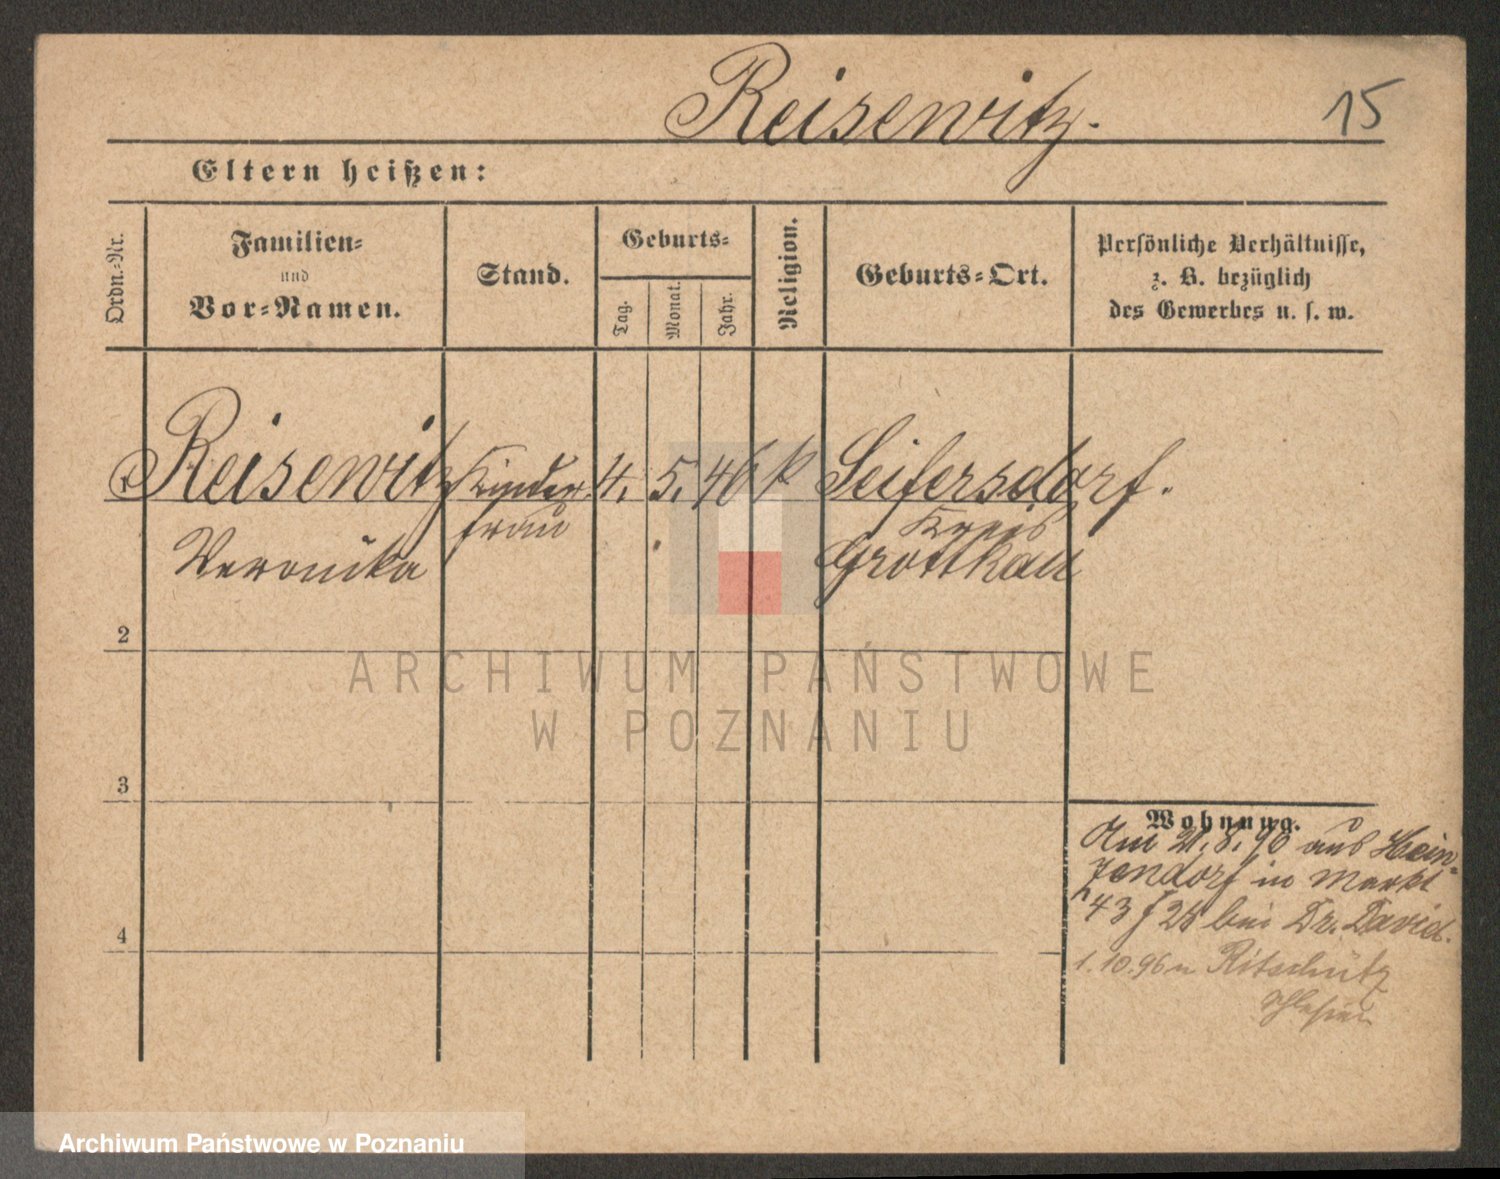 Reisewitz.
15
Eltern heißen:
Ordn.-Nr.
Familien-
und
Vor-Namen.
Stand.
Geburts-
Tag.
Monat.
Jahr.
Religion.
Geburts-Ort.
Persönliche Verhältnisse,
z. B. bezüglich
des Gewerbes u. s. w.
1. Reisewitz Kinder 4. 5. 46 k Seifersdorf.
frau Kreis
Veronika Grottkau
2
ARCHIWUM PAŃSTWOWE
W POZNANIU
3
Wohnung.
Am 21. 8. 90 aus Hein-
zendorf in Markt
43 f 25 bei Dr. David.
4
1. 10. 96 n Ritschütz
Schlesien
Archiwum Państwowe w Poznaniu